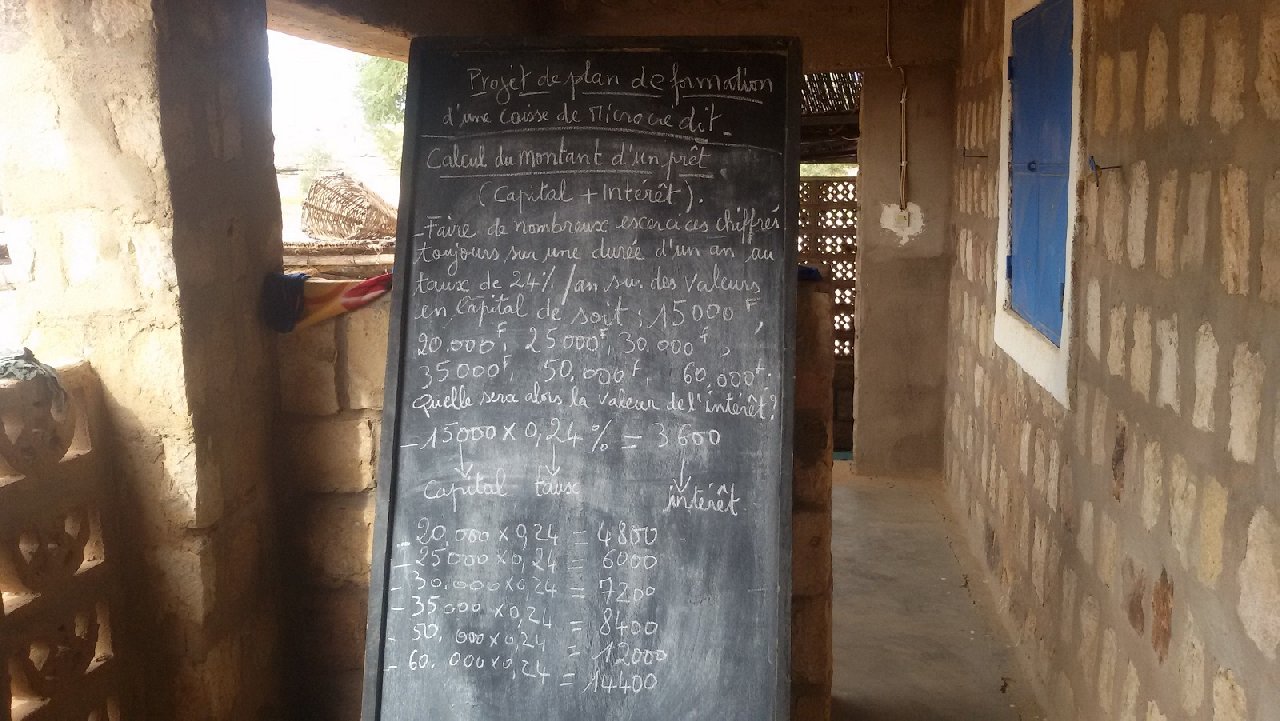 Projet de plan de formation
d'une caisse de Microcrédit.
Calcul du montant d'un prêt
(Capital + Intérêt).
- Faire de nombreux excercices chiffrés
toujours sur une durée d'un an au
taux de 24%/an sur des valeurs
en capital de soit : 15000 F,
20.000F, 25000F, 30.000F,
35000F, 50,000F, 60,000F.
Quelle sera alors la valeur de l'intérêt?
- 15000 x 0,24 % = 3600
Capital taux intérêt
- 20,000 x 0,24 = 4800
- 25000 x 0,24 = 6000
- 30,000 x 0,24 = 7200
- 35000 x 0,24 = 8400
- 50,000 x 0,24 = 12000
- 60.000 x 0,24 = 14400